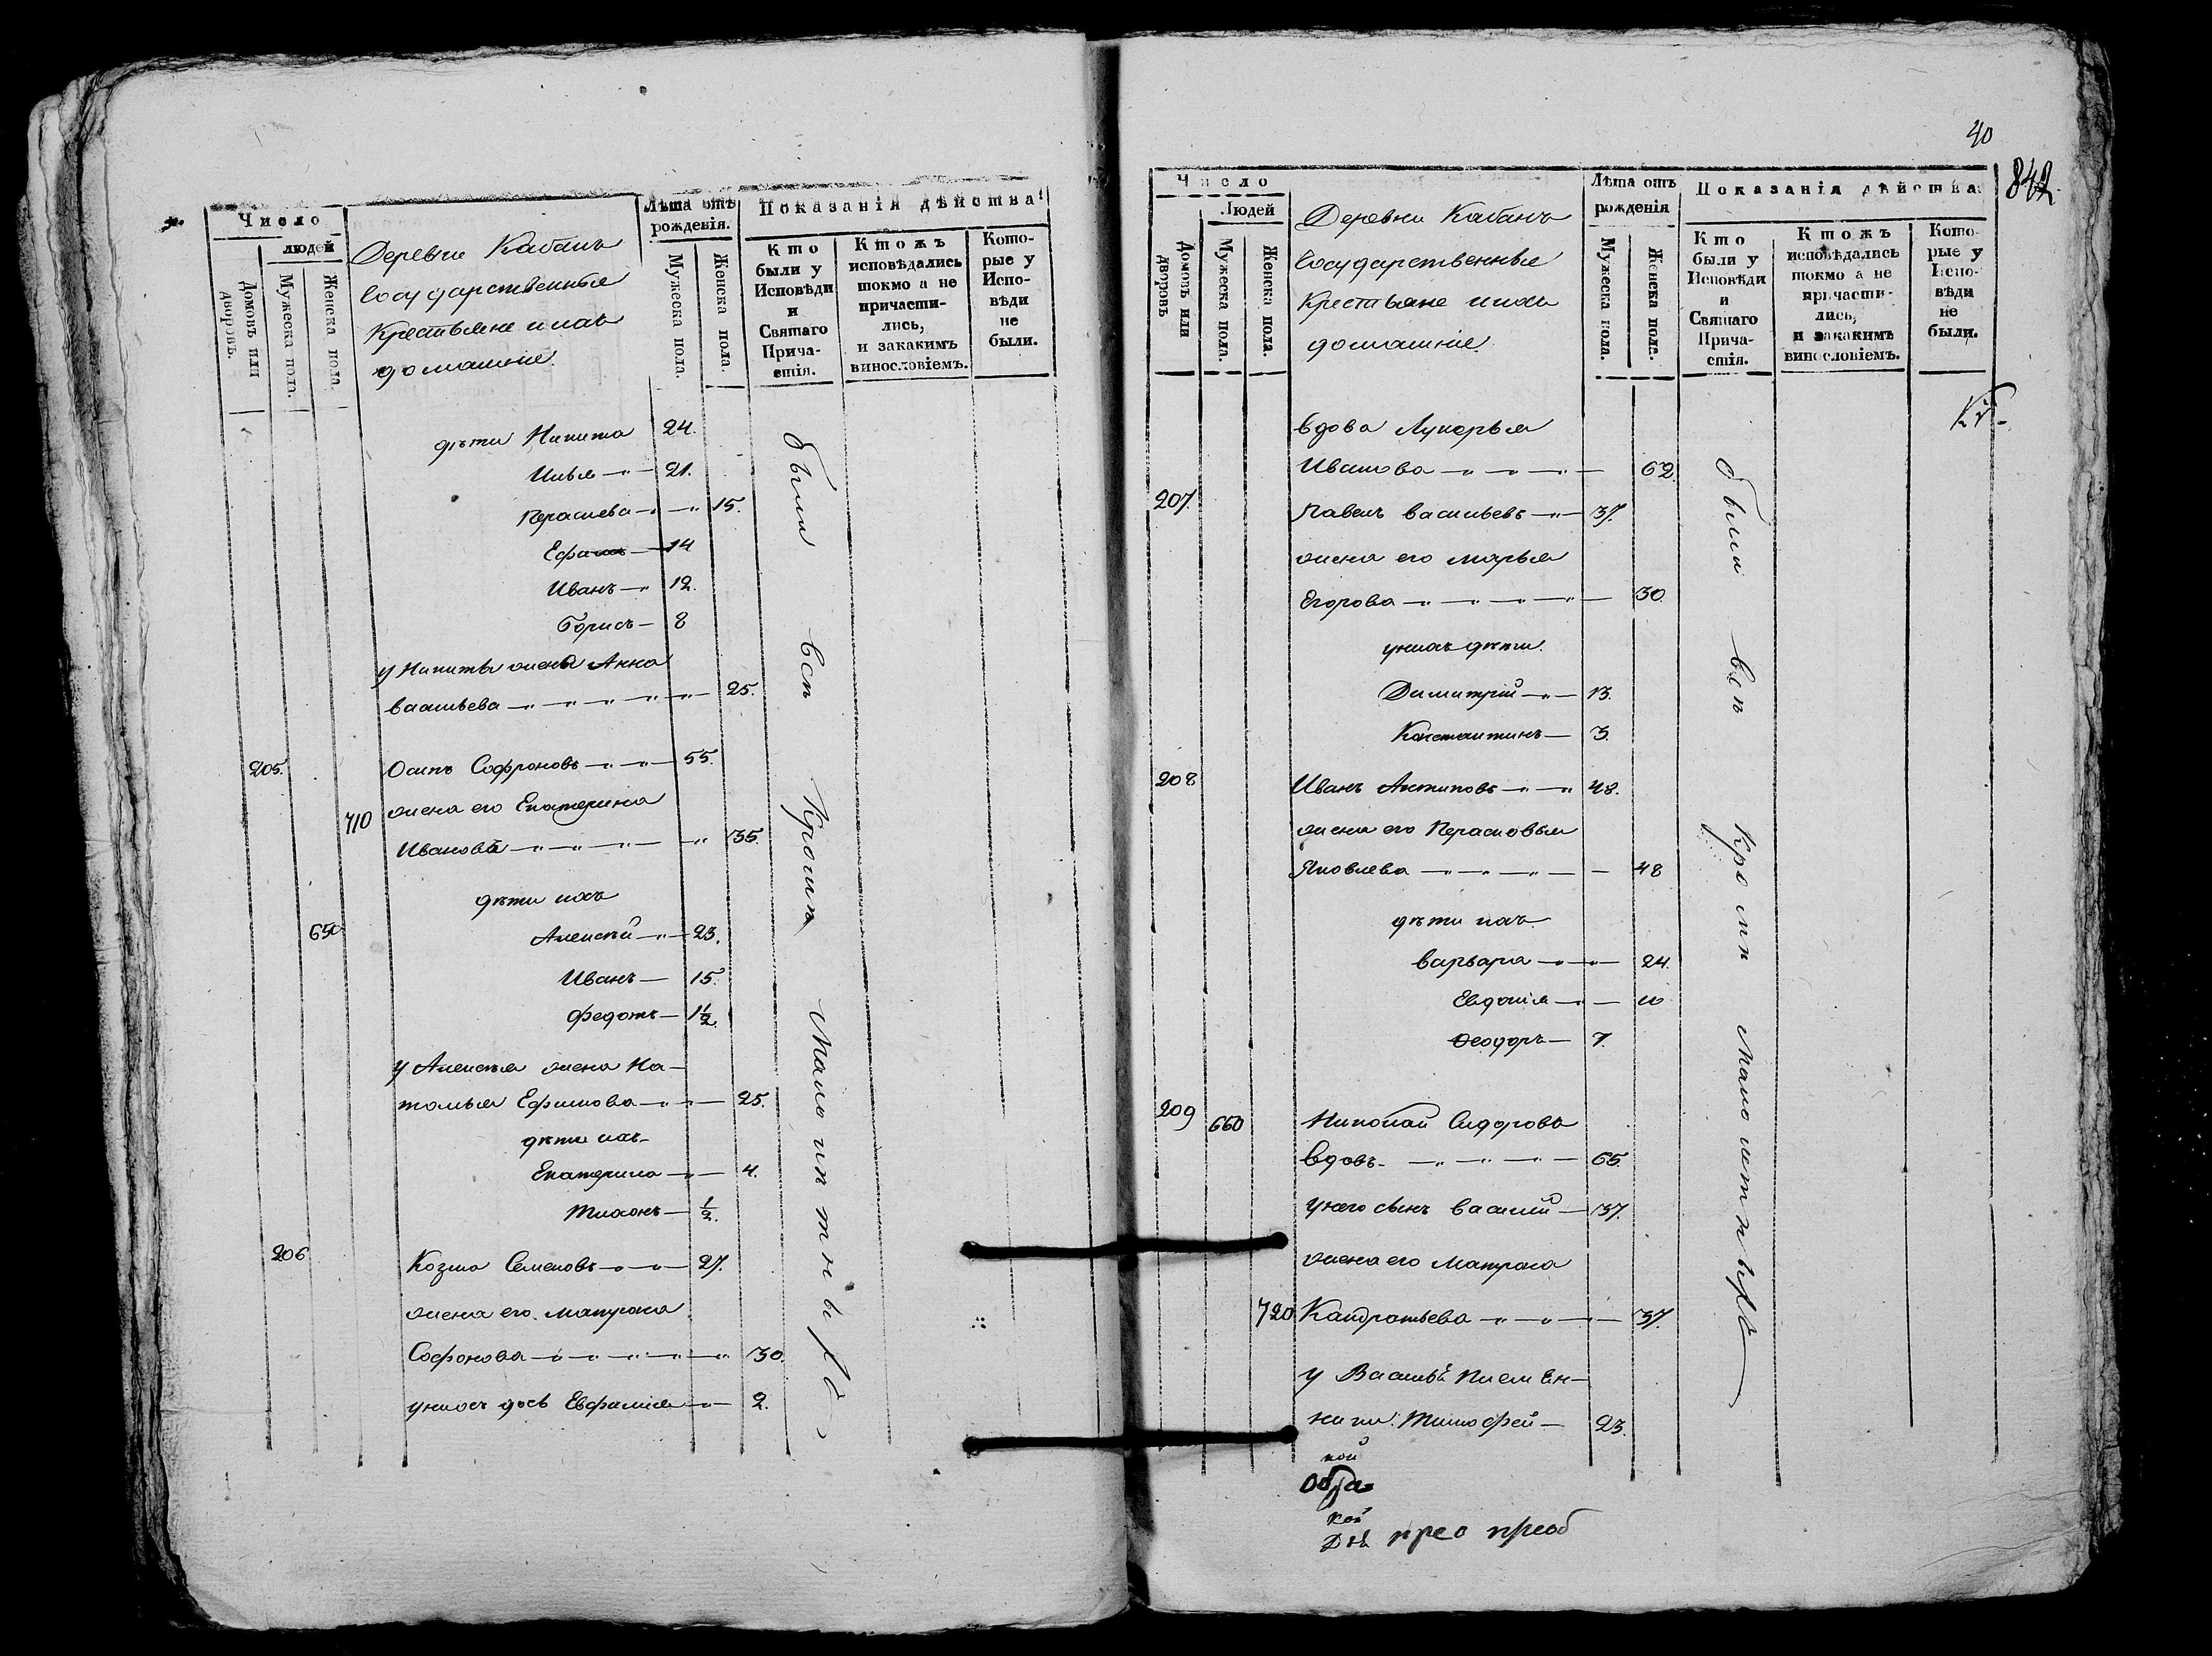 Число
людей
Домовъ или дворовъ.
Мужеска пола.
Женска пола.
Деревни Кабанъ
Государственные
Крестьяне и ихъ
домашние.
Лѣта отъ
рожденія.
Мужеска пола.
Женска пола.
Показанія дѣйства
Кто
были у
Исповѣди
и
Святаго
Прича-
стія.
Ктожъ
исповѣдались
токмо а не
причасти-
лись,
и закакимъ
винословіемъ.
Кото-
рые у
Испо-
вѣди
не
были.
дѣти Никита 24.
Илья 21.
Параскева 15.
Ефимъ 14
Иванъ 12.
Борисъ 8
у Никиты жена Анна
Васильева 25.
205. Осипъ Софроновъ 55.
710 жена его Екатерина
Иванова 35.
дѣти ихъ
650 Алексѣй 23.
Иванъ 15.
Федотъ 1½.
у Алексѣя жена На-
талья Ефимова 25.
дѣти ихъ
Екатерина 4.
Тихонъ ½.
206 Козма Семеновъ 27.
жена его Матрона
Софонова 30.
у нихъ дочь Евфимия 2.
были всѣ Кромѣ Малолѣтныхъ
40
842
Число
Людей
Домовъ или дворовъ
Мужеска пола.
Женска пола.
Деревни Кабанъ
Государственные
Крестьяне и ихъ
домашніе.
Лѣта отъ
рожденія
Мужеска пола.
Женска пола.
Показанія дѣйства
Кто
были у
Исповѣди
и
Святаго
Прича-
стія.
Ктожъ
исповѣдались
токмо а не
причасти-
лись,
и закакимъ
винословіемъ.
Кото-
рые у
Испо-
вѣди
не
были.
вдова Лукерья
Иванова 62
207. Павелъ Васильевъ 37.
жена его Марья
Егорова 30.
у нихъ дѣти.
Димитрій 13.
Константинъ 3.
208 Иванъ Антиповъ 48.
жена его Парасковья
Яковлева 48
дѣти ихъ.
Варвара 24.
Евдокія 10
Ѳеодоръ 7.
209 660 Николай Сидоровъ
вдовъ. 65.
у него сынъ Василий 37.
жена его Матрона
720 Кандратьева 37.
у Василья племен-
никъ Тимофей 23.
были всѣ Кромѣ Малолетныхъ